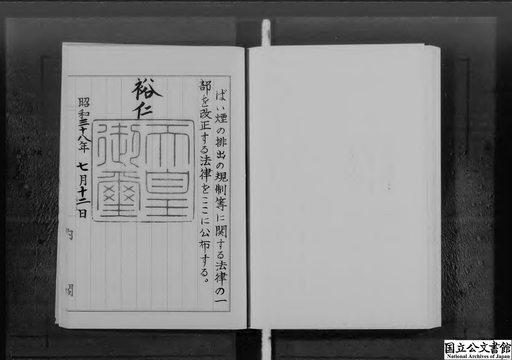 ばい煙の排出の規制等に関する法律の一
部を改正する法律をここに公布する。
裕仁
天皇
御璽
昭和三十八年 七月十二日
国立公文書館
National Archives of Japan